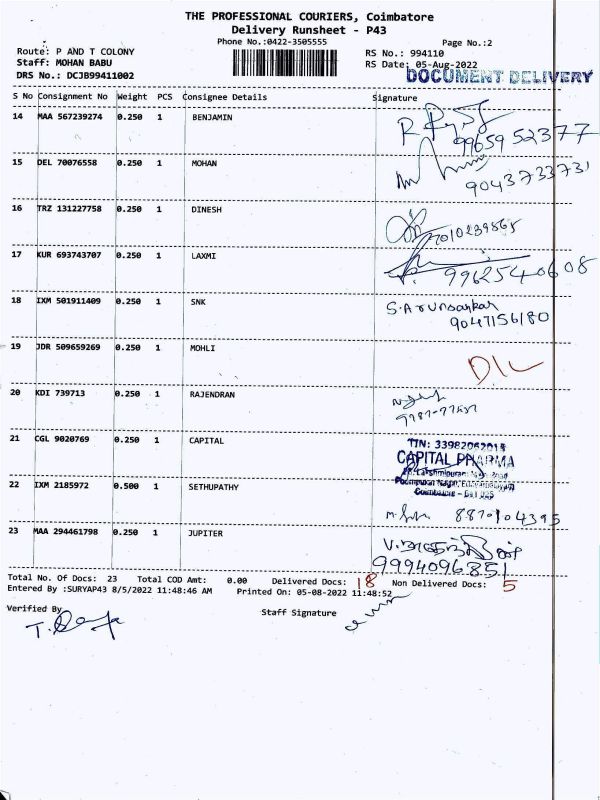 THE PROFESSIONAL COURIERS, Coimbatore
Delivery Runsheet - P43
Phone No.:0422-3505555 Page No.:2
Route: P AND T COLONY RS No.: 994110
Staff: MOHAN BABU RS Date: 05-Aug-2022
DRS No.: DCJB99411002 DOCUMENT DELIVERY
S No Consignment No Weight PCS Consignee Details Signature
14 MAA 567239274 0.250 1 BENJAMIN
9965952377
15 DEL 70076558 0.250 1 MOHAN
9043733731
16 TRZ 131227758 0.250 1 DINESH
7010239865
17 KUR 693743707 0.250 1 LAXMI
9962540608
18 IXM 501911409 0.250 1 SNK S.Arunsankar
9047156180
19 JDR 509659269 0.250 1 MOHLI
D/L
20 KDI 739713 0.250 1 RAJENDRAN
21 CGL 9020769 0.250 1 CAPITAL TIN: 33982062015
CAPITAL PHARMA
Coimbatore - 641 025
22 IXM 2185972 0.500 1 SETHUPATHY
8870104395
23 MAA 294461798 0.250 1 JUPITER
9994096851
Total No. Of Docs: 23 Total COD Amt: 0.00 Delivered Docs: 18 Non Delivered Docs: 5
Entered By :SURYAP43 8/5/2022 11:48:46 AM Printed On: 05-08-2022 11:48:52
Verified By Staff Signature